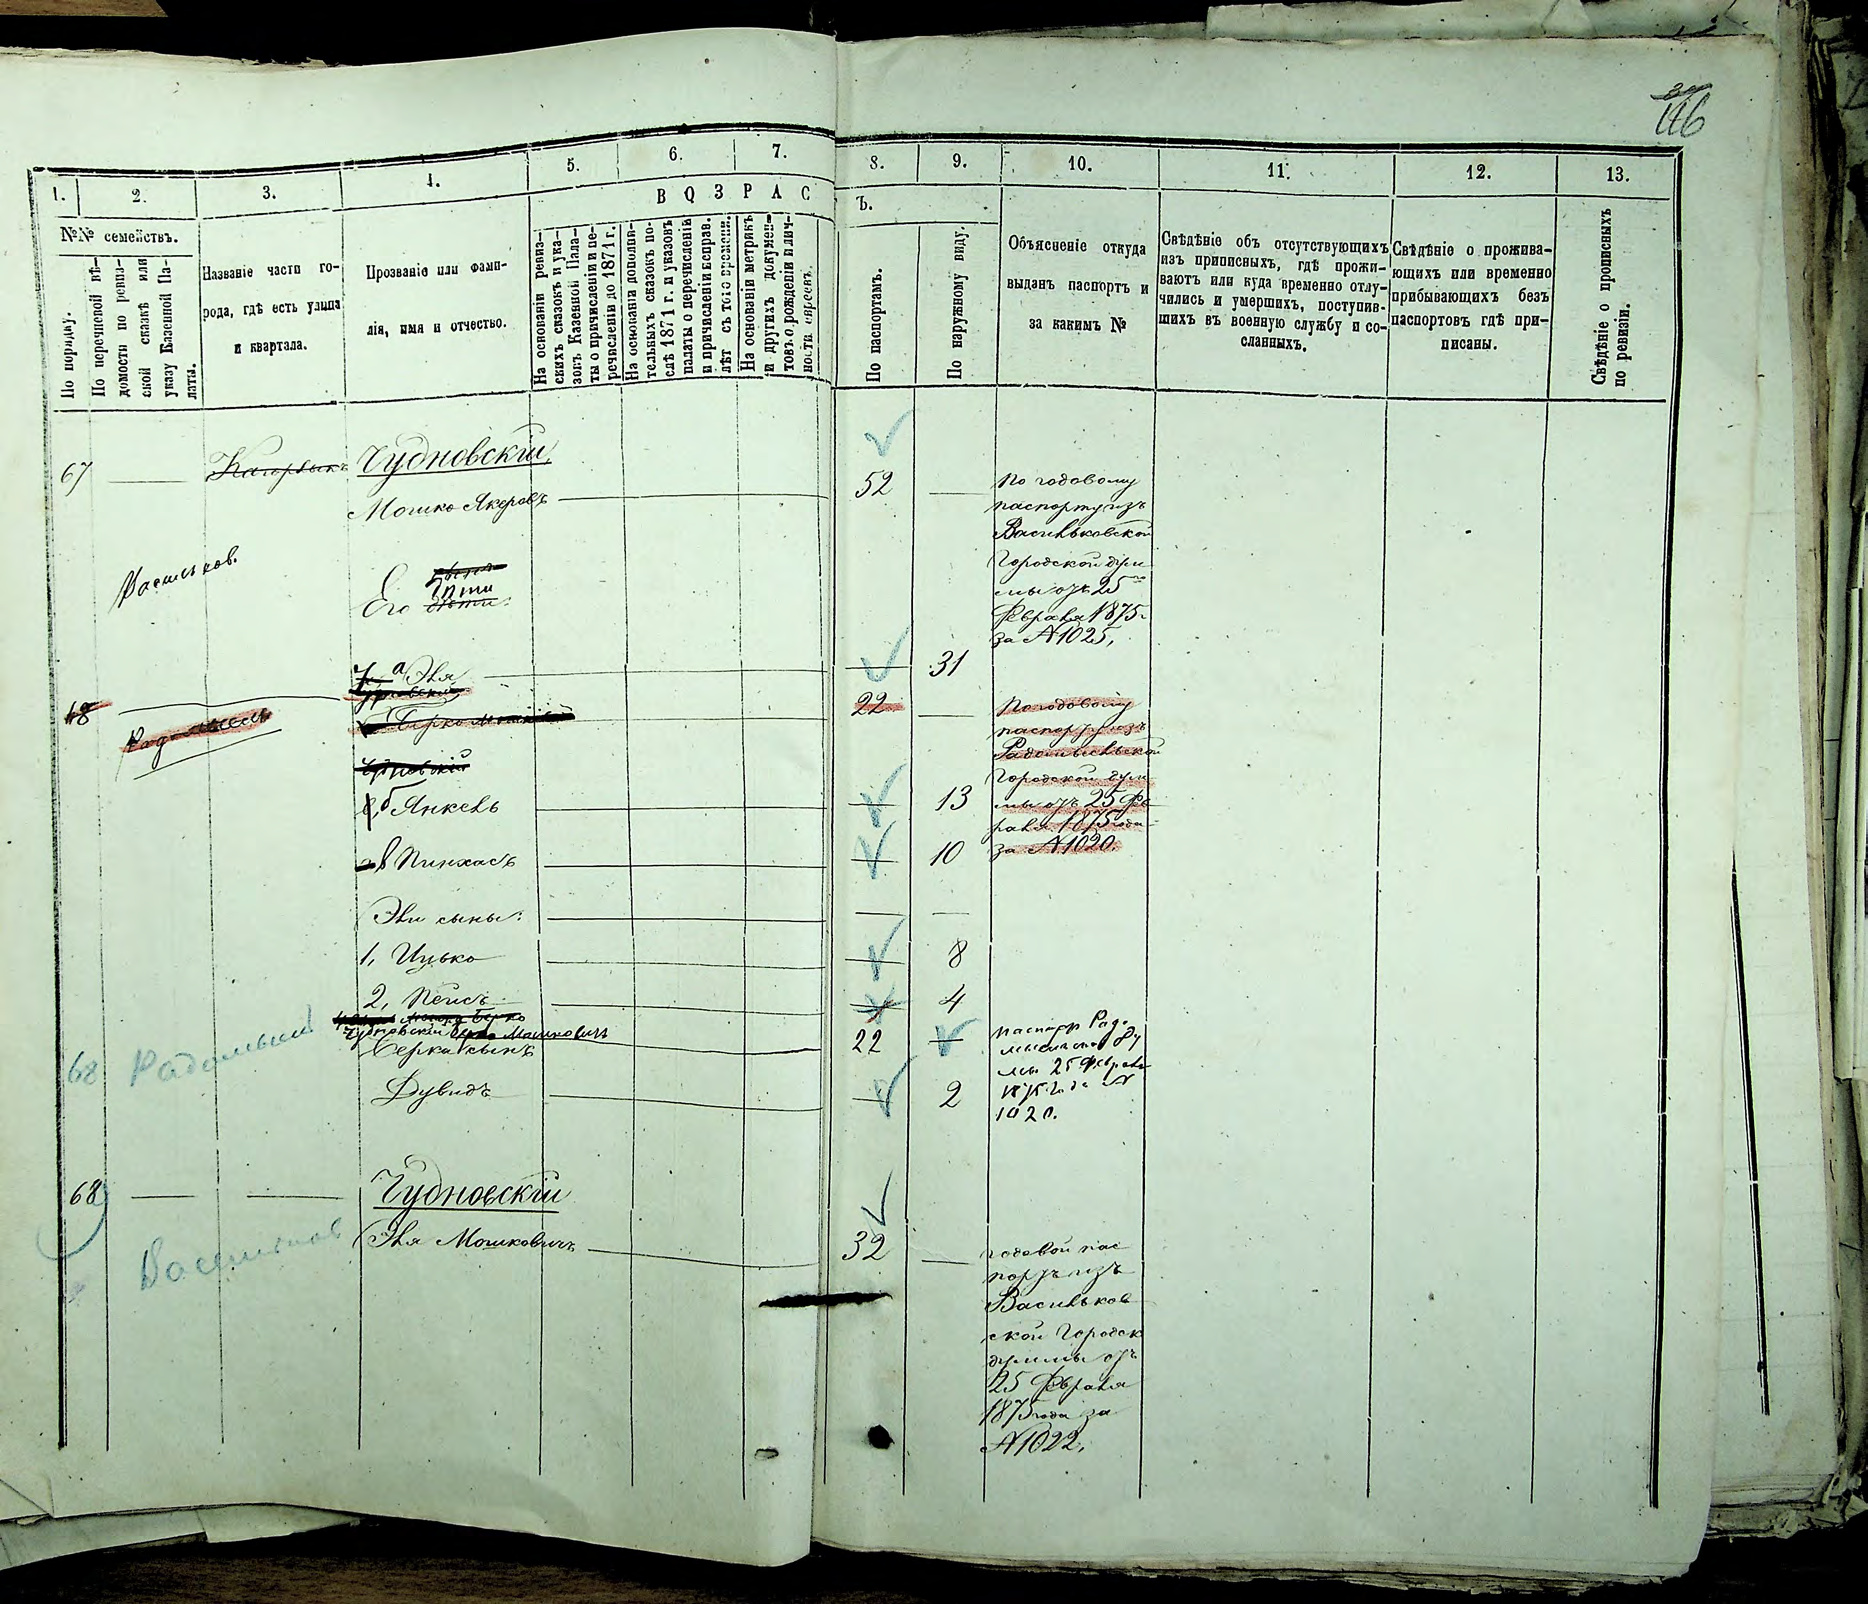 146
1.
2.
3.
4.
5.
6.
7.
8.
9.
10.
11.
12.
13.
ВОЗРАС
Ъ.
№№ семействъ.
По порядку.
По перечневой вѣ-
домости по ревиз-
ской сказкѣ или
указу Казенной Па-
латы.
Названіе части го-
рода, гдѣ есть улица
и квартала.
Прозваніе или фами-
лія, имя и отчество.
На основаніи ревиз-
скихъ сказокъ и ука-
зовъ Казенной Пала-
ты о причисленіи и пе-
речисленіи до 1871 г.
На основаніи дополни-
тельныхъ сказокъ по-
слѣ 1871 г. и указовъ
палаты о перечисленіи
и причисленіи исправ.
лѣт съ того времени.
На основаніи метрикъ
и другихъ докумен-
товъ о рожденіи и лич-
ности евреевъ.
По паспортамъ.
По наружному виду.
Объясненіе откуда
выданъ паспортъ и
за какимъ №
Свѣдѣніе объ отсутствующихъ
изъ приписныхъ, гдѣ прожи-
ваютъ или куда временно отлу-
чились и умершихъ, поступив-
шихъ въ военную службу и со-
сланныхъ.
Свѣдѣніе о прожива-
ющихъ или временно
прибывающихъ безъ
паспортовъ гдѣ при-
писаны.
Свѣдѣніе о прописныхъ
по ревизіи.
67
Кагорлыкъ
Чудновскій
Мошко Якеровъ
52
По годовому
паспорту изъ
Васильковской
Городской Дум
мы отъ 25го
Февраля 1875 г.
за №1025,
Васильков.
Его
дѣти:
а Эля
31
68
Радомысль
Чудновскій
Берко Мошкович
22
По годовому
паспорту изъ
Радомысльской
Городской Дум
мы отъ 25 Фев
раля 1875 года
за №1020.
Чудновскій
б Янкель
13
в Пинхасъ
10
Эли сыны:
1, Ицько
8
2, Пейсъ
4
68
Радомысль
Чудновскій Берко Мошковичъ
22
паспорт Радо
мысльской Ду
мы 25 Февраля
1875 года №
1020.
Берка сынъ
Дувидъ
2
68
Васильков
Чудновскій
Эля Мошковичъ
32
годовой пас
портъ изъ
Васильков
ской Городск
думмы отъ
25 Февраля
1875 года за
№1022,